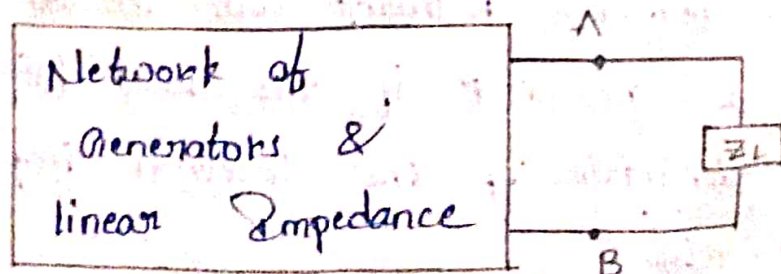 A
Network of
Generators &
linear Impedance
ZL
B